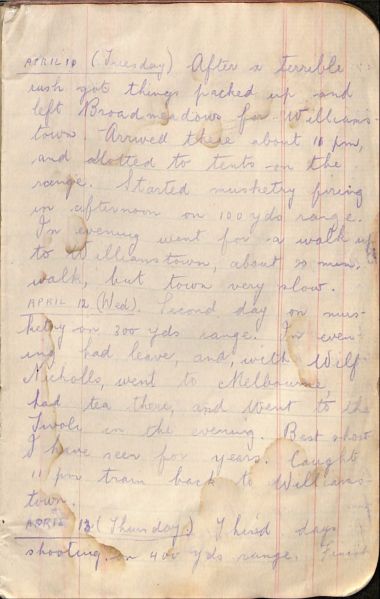 APRIL 10 (Tuesday) After a terrible
rush got things packed up and
left Broadmeadows for Williams-
town. Arrived there about 10 pm,
and allotted to tents on the
range. Started musketry firing
in afternoon on 100 yds range.
In evening went for a walk up
to Williamstown, about 20 min.
walk, but town very slow.
APRIL 12 (Wed). Second day on mus-
ketry on 300 yds range. In even-
ing had leave, and, with Wilf
Nicholls, went to Melbourne
had tea there, and went to the
Tivoli in the evening. Best show
I have seen for years. Caught
11 pm train back to Williams-
town.
APRIL 13 (Thursday) Third days
shooting on 400 yds range.